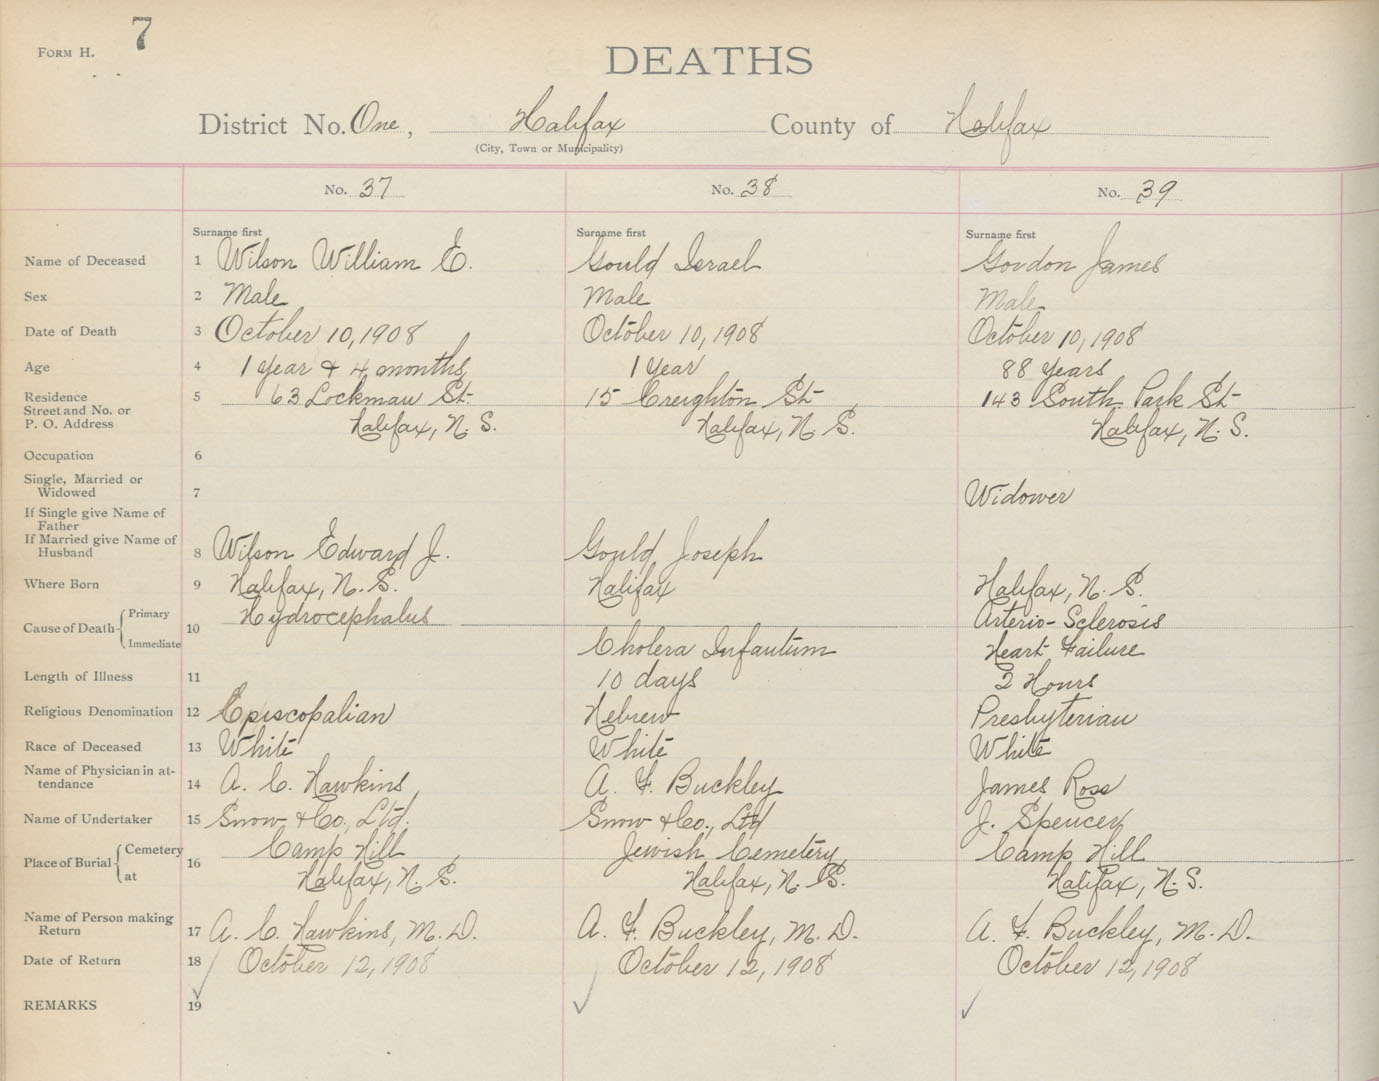 FORM H. 7
DEATHS
District No. One, Halifax County of Halifax
(City, Town or Municipality)
No. 37 No. 38 No. 39
Surname first Surname first Surname first
Name of Deceased 1 Wilson William E. Gould Israel Gordon James
Sex 2 Male Male Male
Date of Death 3 October 10, 1908 October 10, 1908 October 10, 1908
Age 4 1 year & 4 months 1 year 88 years
Residence 5 63 Lockman St. 15 Creighton St. 143 South Park St.
Street and No. or
P. O. Address Halifax, N. S. Halifax, N. S. Halifax, N. S.
Occupation 6
Single, Married or
Widowed 7 Widower
If Single give Name of
Father
If Married give Name of
Husband 8 Wilson Edward J. Gould Joseph
Where Born 9 Halifax, N. S. Halifax Halifax, N. S.
Cause of Death 10 Primary Hydrocephalus Arterio-Sclerosis
Immediate Cholera Infantum Heart Failure
Length of Illness 11 10 days 2 Hours
Religious Denomination 12 Episcopalian Hebrew Presbyterian
Race of Deceased 13 White White White
Name of Physician in at-
tendance 14 A. C. Hawkins A. F. Buckley James Ross
Name of Undertaker 15 Snow & Co., Ltd. Snow & Co., Ltd J. Spencer
Place of Burial 16 Cemetery Camp Hill Jewish Cemetery Camp Hill
at Halifax, N. S. Halifax, N. S. Halifax, N. S.
Name of Person making
Return 17 A. C. Hawkins, M. D. A. F. Buckley, M. D. A. F. Buckley, M. D.
Date of Return 18 October 12, 1908 October 12, 1908 October 12, 1908
REMARKS 19